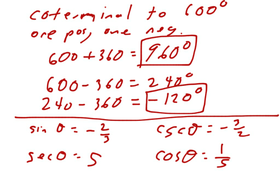 coterminal to 600°
one pos, one neg.
600 + 360 = 960°
600 - 360 = 240°
240 - 360 = -120°
sin θ = -2/3 cscθ = -3/2
secθ = 5 cosθ = 1/5